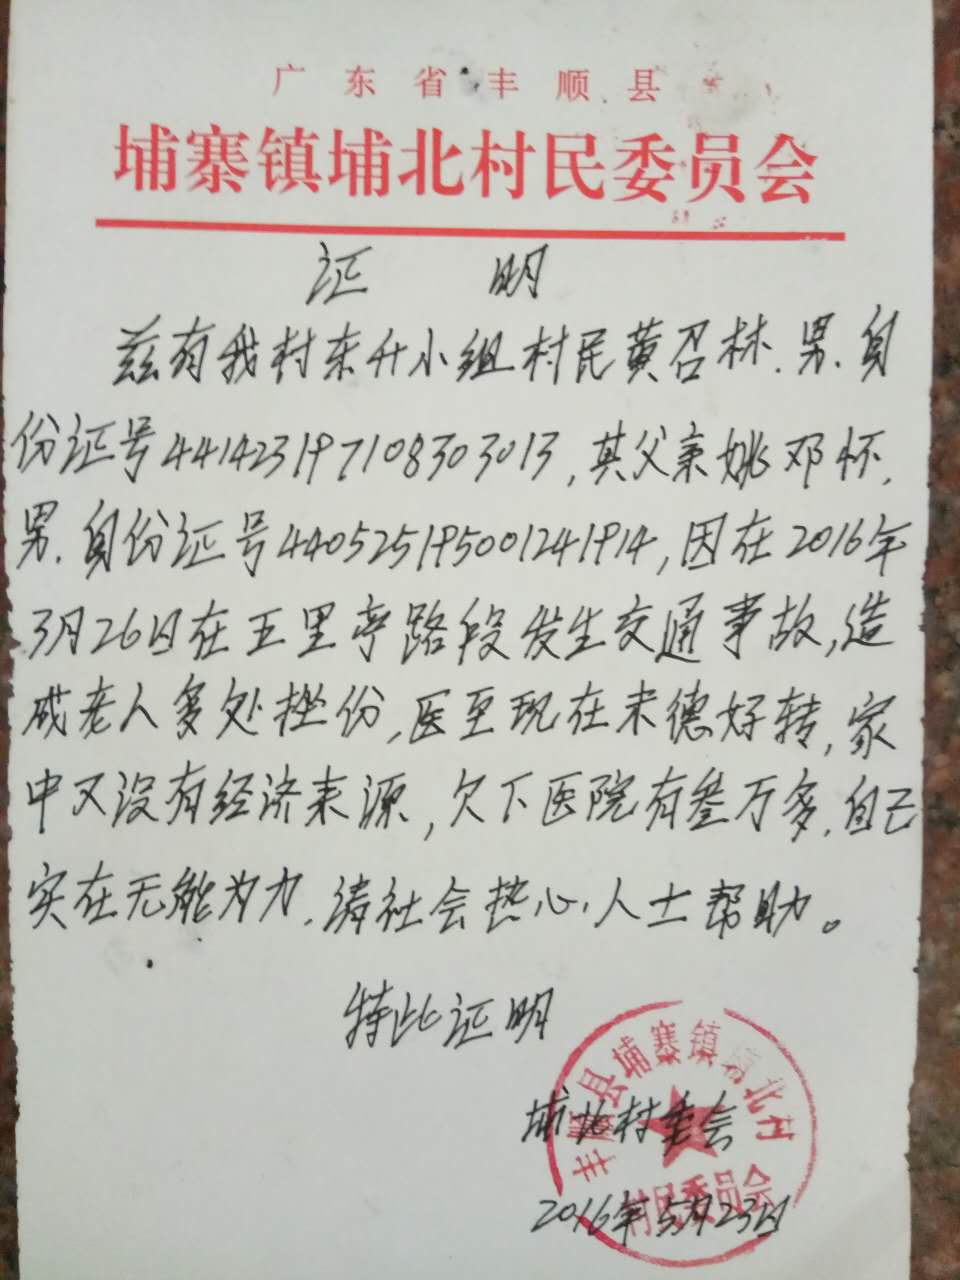 广东省丰顺县
埔寨镇埔北村民委员会
证 明
兹有我村东升小组村民黄召林.男.身
份证号441423197108303013,其父亲姚邓怀,
男.身份证号440525195001241914,因在2016年
3月26日在五里亭路段发生交通事故,造
成老人多处挫份,医至现在未德好转,家
中又没有经济来源,欠下医院有叁万多.自己
实在无能为力.请社会热心人士帮助。
特此证明
埔北村委会
2016年5月23日
丰顺县埔寨镇埔北村
村民委员会